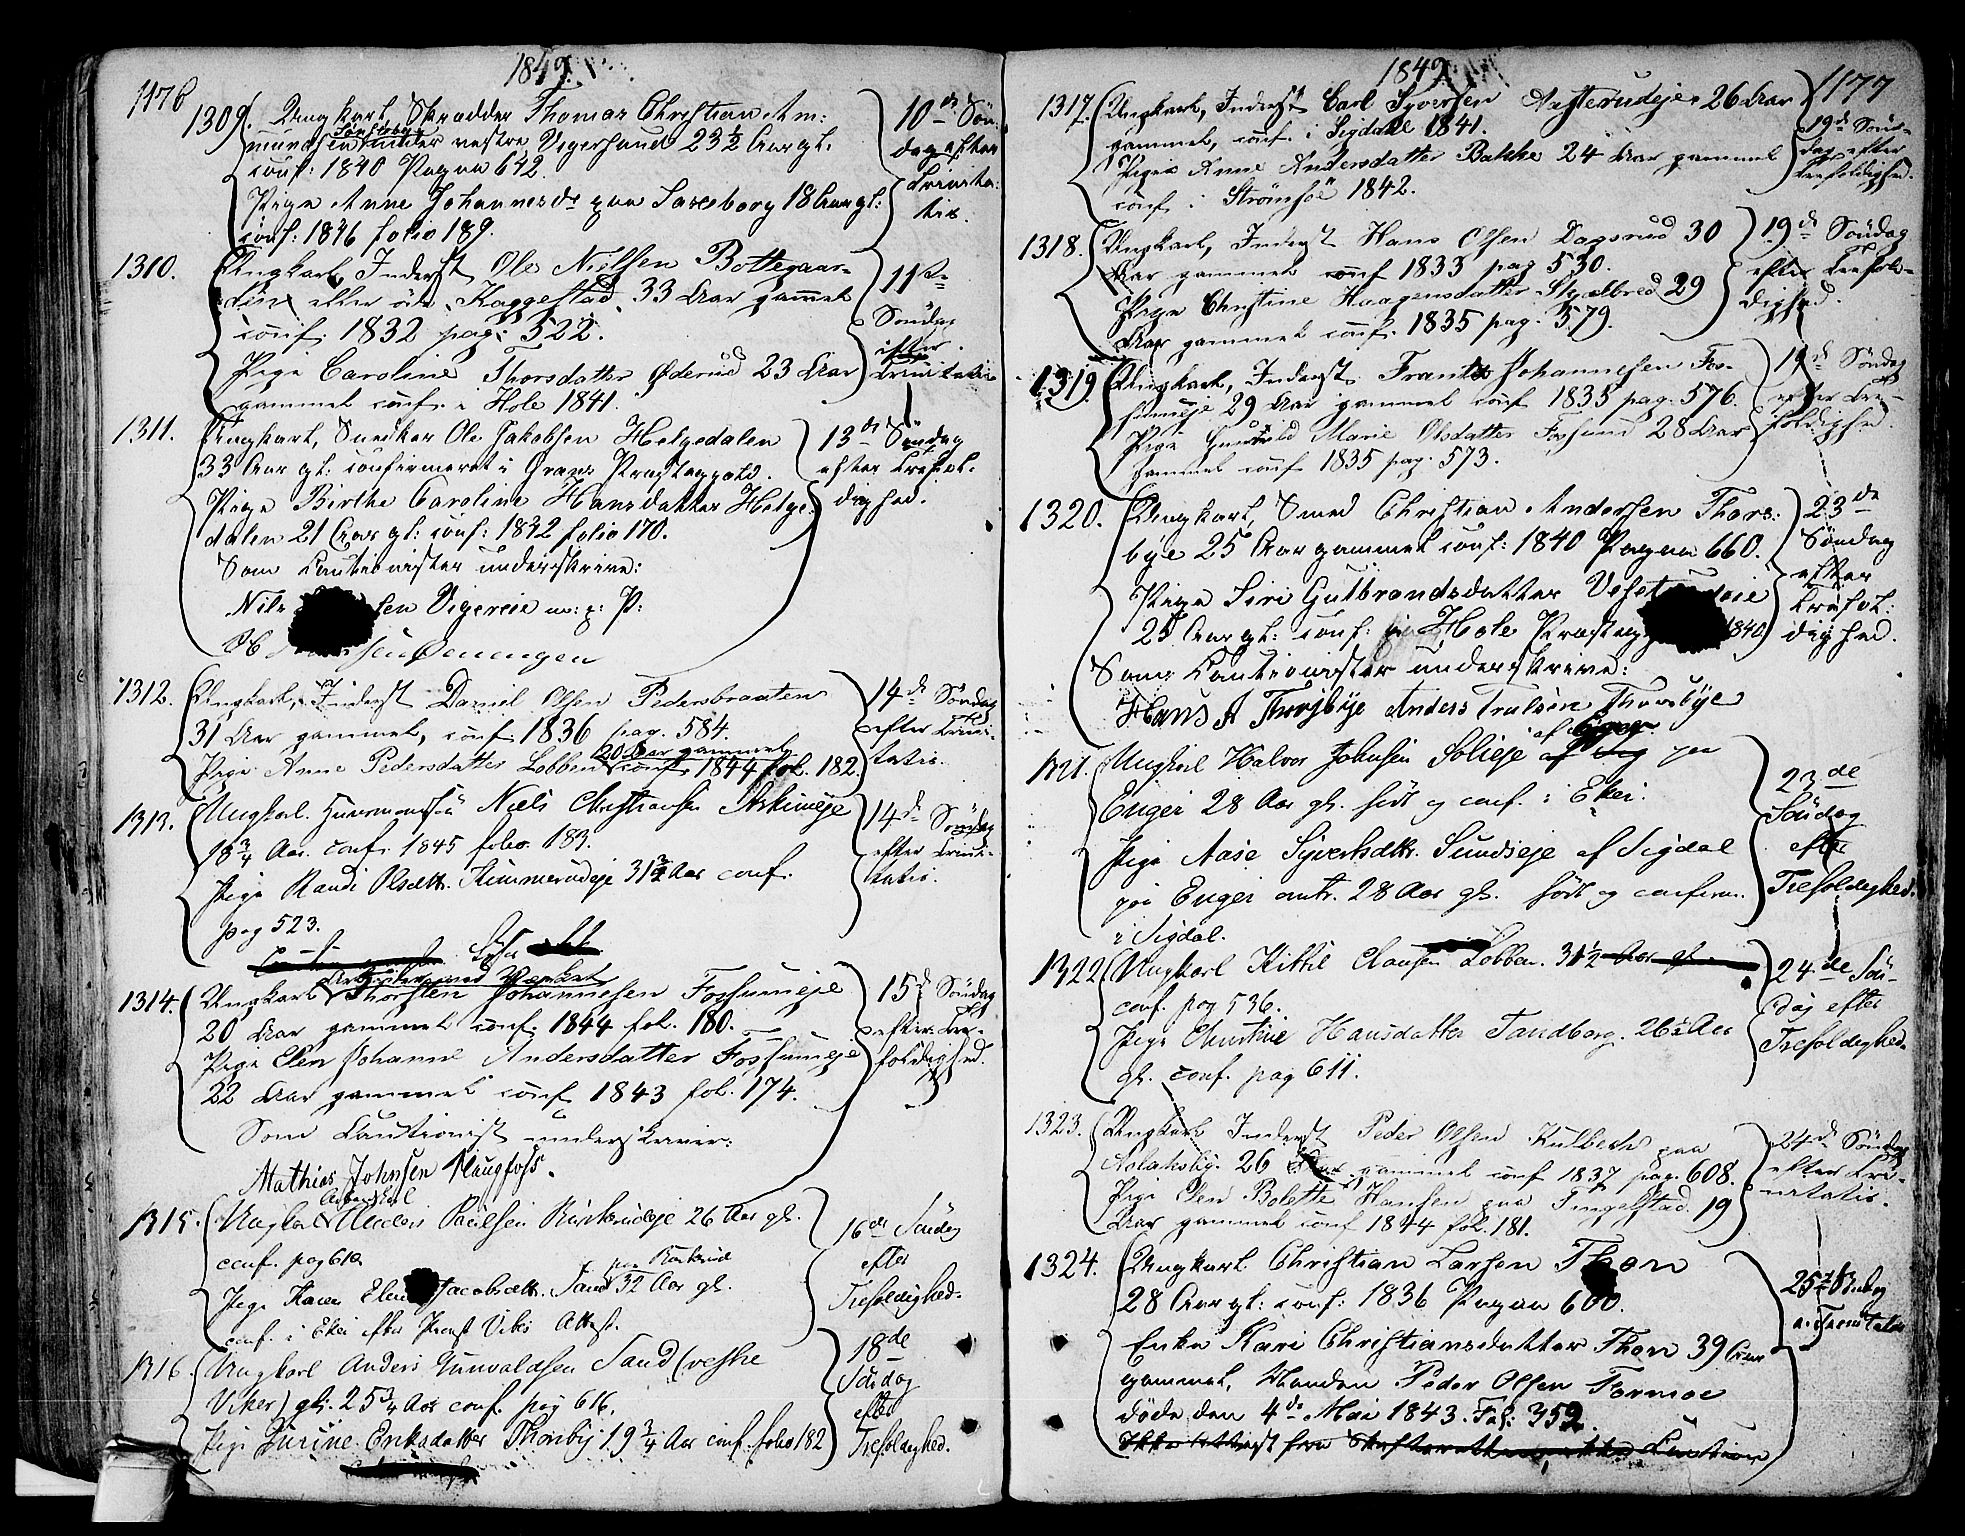 1176
1849.
1309. Ungkarl, Skrædder Thomas Christian Am:
mundsen under vestre Vigersund 23 1/2 Aar gl.
conf: 1840 Pagna 642.
Pige Anne Johannesdr paa 18 Aar gl:
conf: 1846 folio 189.
10de Søn:
dag efter
Trinita:
tis.
1310. Ungkarl, Inderst Ole Nielsen Bottegaar-
den eller øde Kaggestad, 33 Aar gammel
conf. 1832 pag: 522.
Pige Caroline Thorsdatter Øderud 23 Aar
gammel conf. i Hole 1841.
11te
Søndag
efter
Trinitatis
1311. Ungkarl, Snedker Ole Jakobsen Helgedalen
33 Aar gl: confirmeret i Grans Præstegjeld.
Pige Birthe Caroline Hansdatter Helge
dalen 21 Aar gl: conf: 1842 folio 170.
Som Cautionister underskrive:
Nils sen Vigereie m: p: P:
13de Søndag
efter Trefol:
dighed.
1312. Ungkarl, Inderst Daniel Olsen Pedersbraaten
31 Aar gammel, conf. 1836 pag. 584.
20 Aar gammel
Pige Anne Pedersdatter Lobben conf. 1844 fol. 182.
14de Søndag
efter Trini-
tatis.
1313. Ungkarl. Huusmandssøn Niels Christiansen Askimeje
18 3/4 Aar. conf. 1845 folio 183.
Pige Randi Olsdtr. Kimmerudeje 31 3/4 Aar conf.
pag 523.
14de Søndag
efter Trini-
tatis.
1314. Ungkarl Thorsten Johannesen Fossumeje
20 Aar gammel conf. 1844 fol. 180.
Pige Elen Johanne Andersdatter Fossumeje
22 Aar gammel conf 1843 fol. 174.
Som Cautionist underskriver:
Mathias Johnsen Haugfoss.
15de Søndag
efter Tre-
foldighed.
1315. Ungkarl Anders Paulsen Kirkerudeje 26 Aar gl.
conf. pag 610
Pige Karen Elen Jacobsdtr. Sand 32 Aar gl.
conf. i Eker efter Præst Vibes Attest.
16de Søndag
efter
Trefoldighed.
1316. Ungkarl Anders Gunvaldsen Sand (vestre
Viker) gl. 25 3/4 Aar conf. pag 616.
Pige Gurine Eriksdatter Thorsby 19 3/4 Aar conf. folio 182
18de
Søndag
efter
Trefoldighed.
1849.
1177
1317. Ungkarl, Inderst Carl Syversen Aasterudeje 26 Aar
gammel, conf. i Sigdal 1841.
Pige Anne Andersdatter Bakke 24 Aar gammel
conf. i Strømsøe 1842.
19de Søn-
dag efter
Trefoldighed.
1318. Ungkarl, Inderst Hans Olsen Dagsrud 30
Aar gammel conf 1833 pag 530.
Pige Christine Haagensdatter Skjælbred 29
Aar gammel conf. 1835 pag. 579.
19de Søndag
efter Trefol-
dighed.
1319. Ungkarl, Inderst. Frants Johannesen Fos-
sumeje 29 Aar gammel conf 1835 pag. 576.
Pige Gunhild Marie Olsdatter Fossum 28 Aar
gammel conf 1835 pag. 573.
19de Søndag
efter Tre-
foldighed.
1320. Ungkarl, Smed Christian Andersen Thors:
bye 25 Aar gammel conf: 1840 Pagna 660.
Pige Siri Gulbrandsdatter
25 Aar gl: conf: i Hole Præstegj 1840
Som Cautionister underskrive:
Hans A Thorsbye Anders Trulsen Thorsbye
23de
Søndag
efter
Trefol:
dighed.
1321. Ungkarl Halvor Johnsen Solieje af Eger paa
Enger 28 Aar gl. født og conf. i Eker.
Pige Aase Syvertsdtr. Sundseje af Sigdal
paa Enger omtr. 28 Aar gl. født og conferm.
i Sigdal.
23de
Søndag
efter
Trefoldighed.
1322. Ungkarl Kittil Clausen Lobben. 31 1/2 Aar gl.
conf. pag 536.
Pige Christine Hansdatter Tandberg. 26 1/2 Aar
gl. conf. pag 611.
24de Søn-
dag efter
Trefoldighed.
1323. Ungkarl Inderst Peder Olsen Kulbech paa
Aslaksby. 26 Aar gammel conf 1837 pag. 608.
Pige Elen Bolette Hansen paa Tingelstad. 19
Aar gammel conf 1844 fol. 181.
24de Søndag
efter Tri-
nitatis.
1324. Ungkarl Christian Larsen Thon
28 Aar gl: conf: 1836 Pagna 600.
Enke Kari Christiansdatter Thon 39 Aar
gammel, Manden Peder Olsen Formoe
døde den 4de Mai 1843. Fol: 352.
25de Søndag
e. Trinitatis